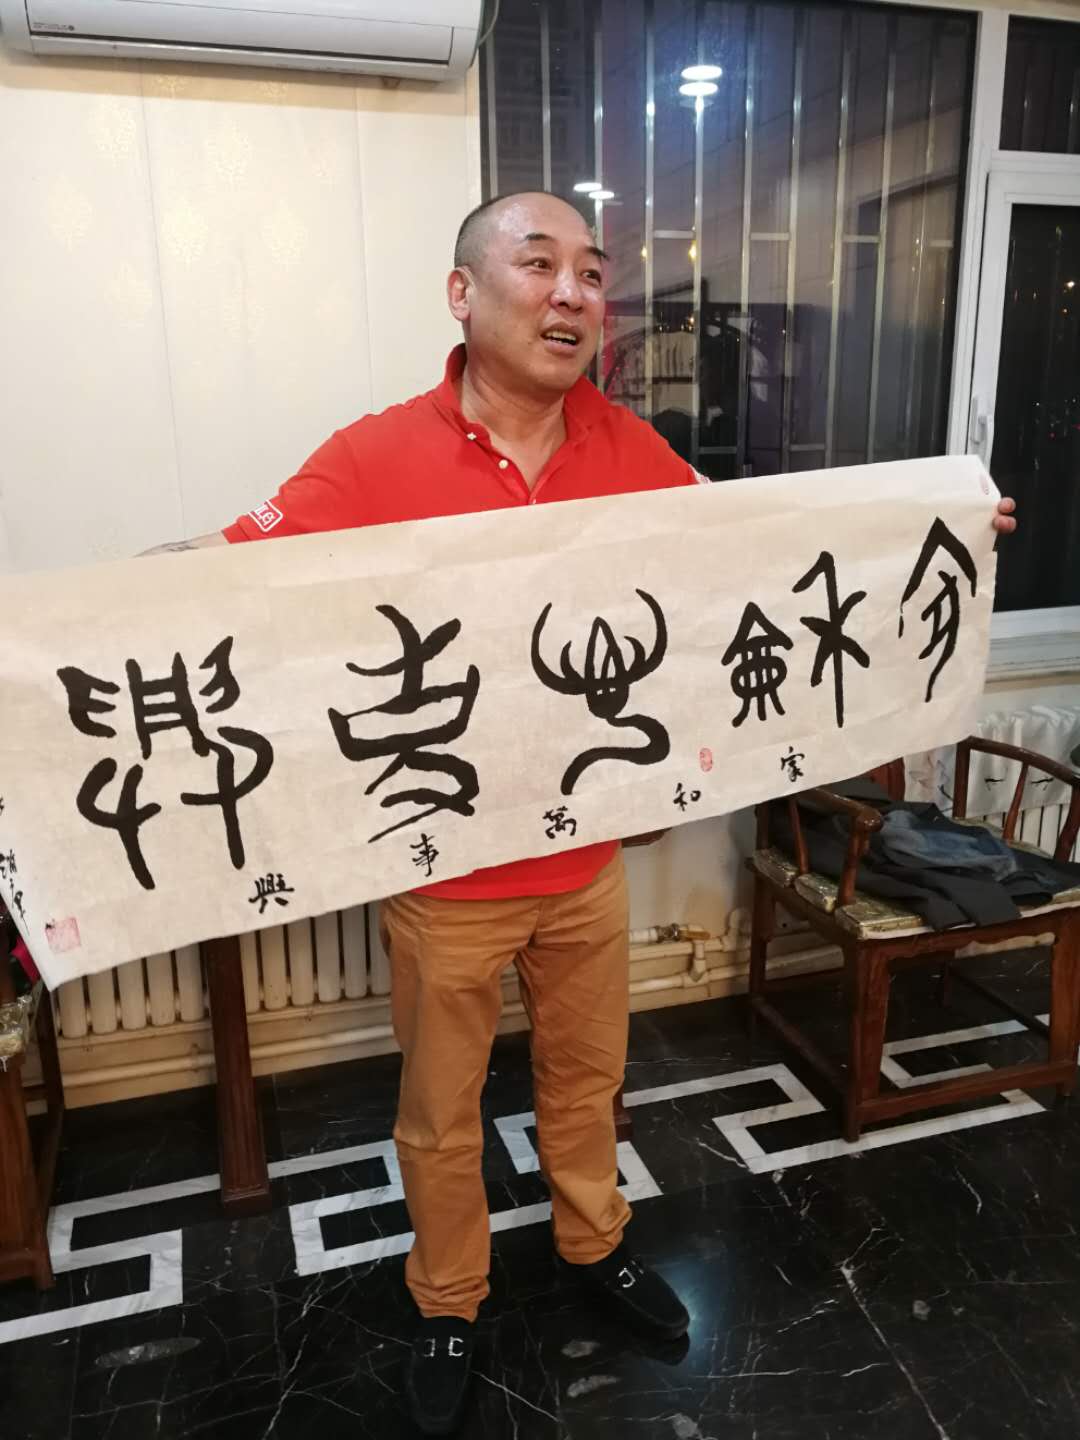 家龢萬事興
家和萬事興